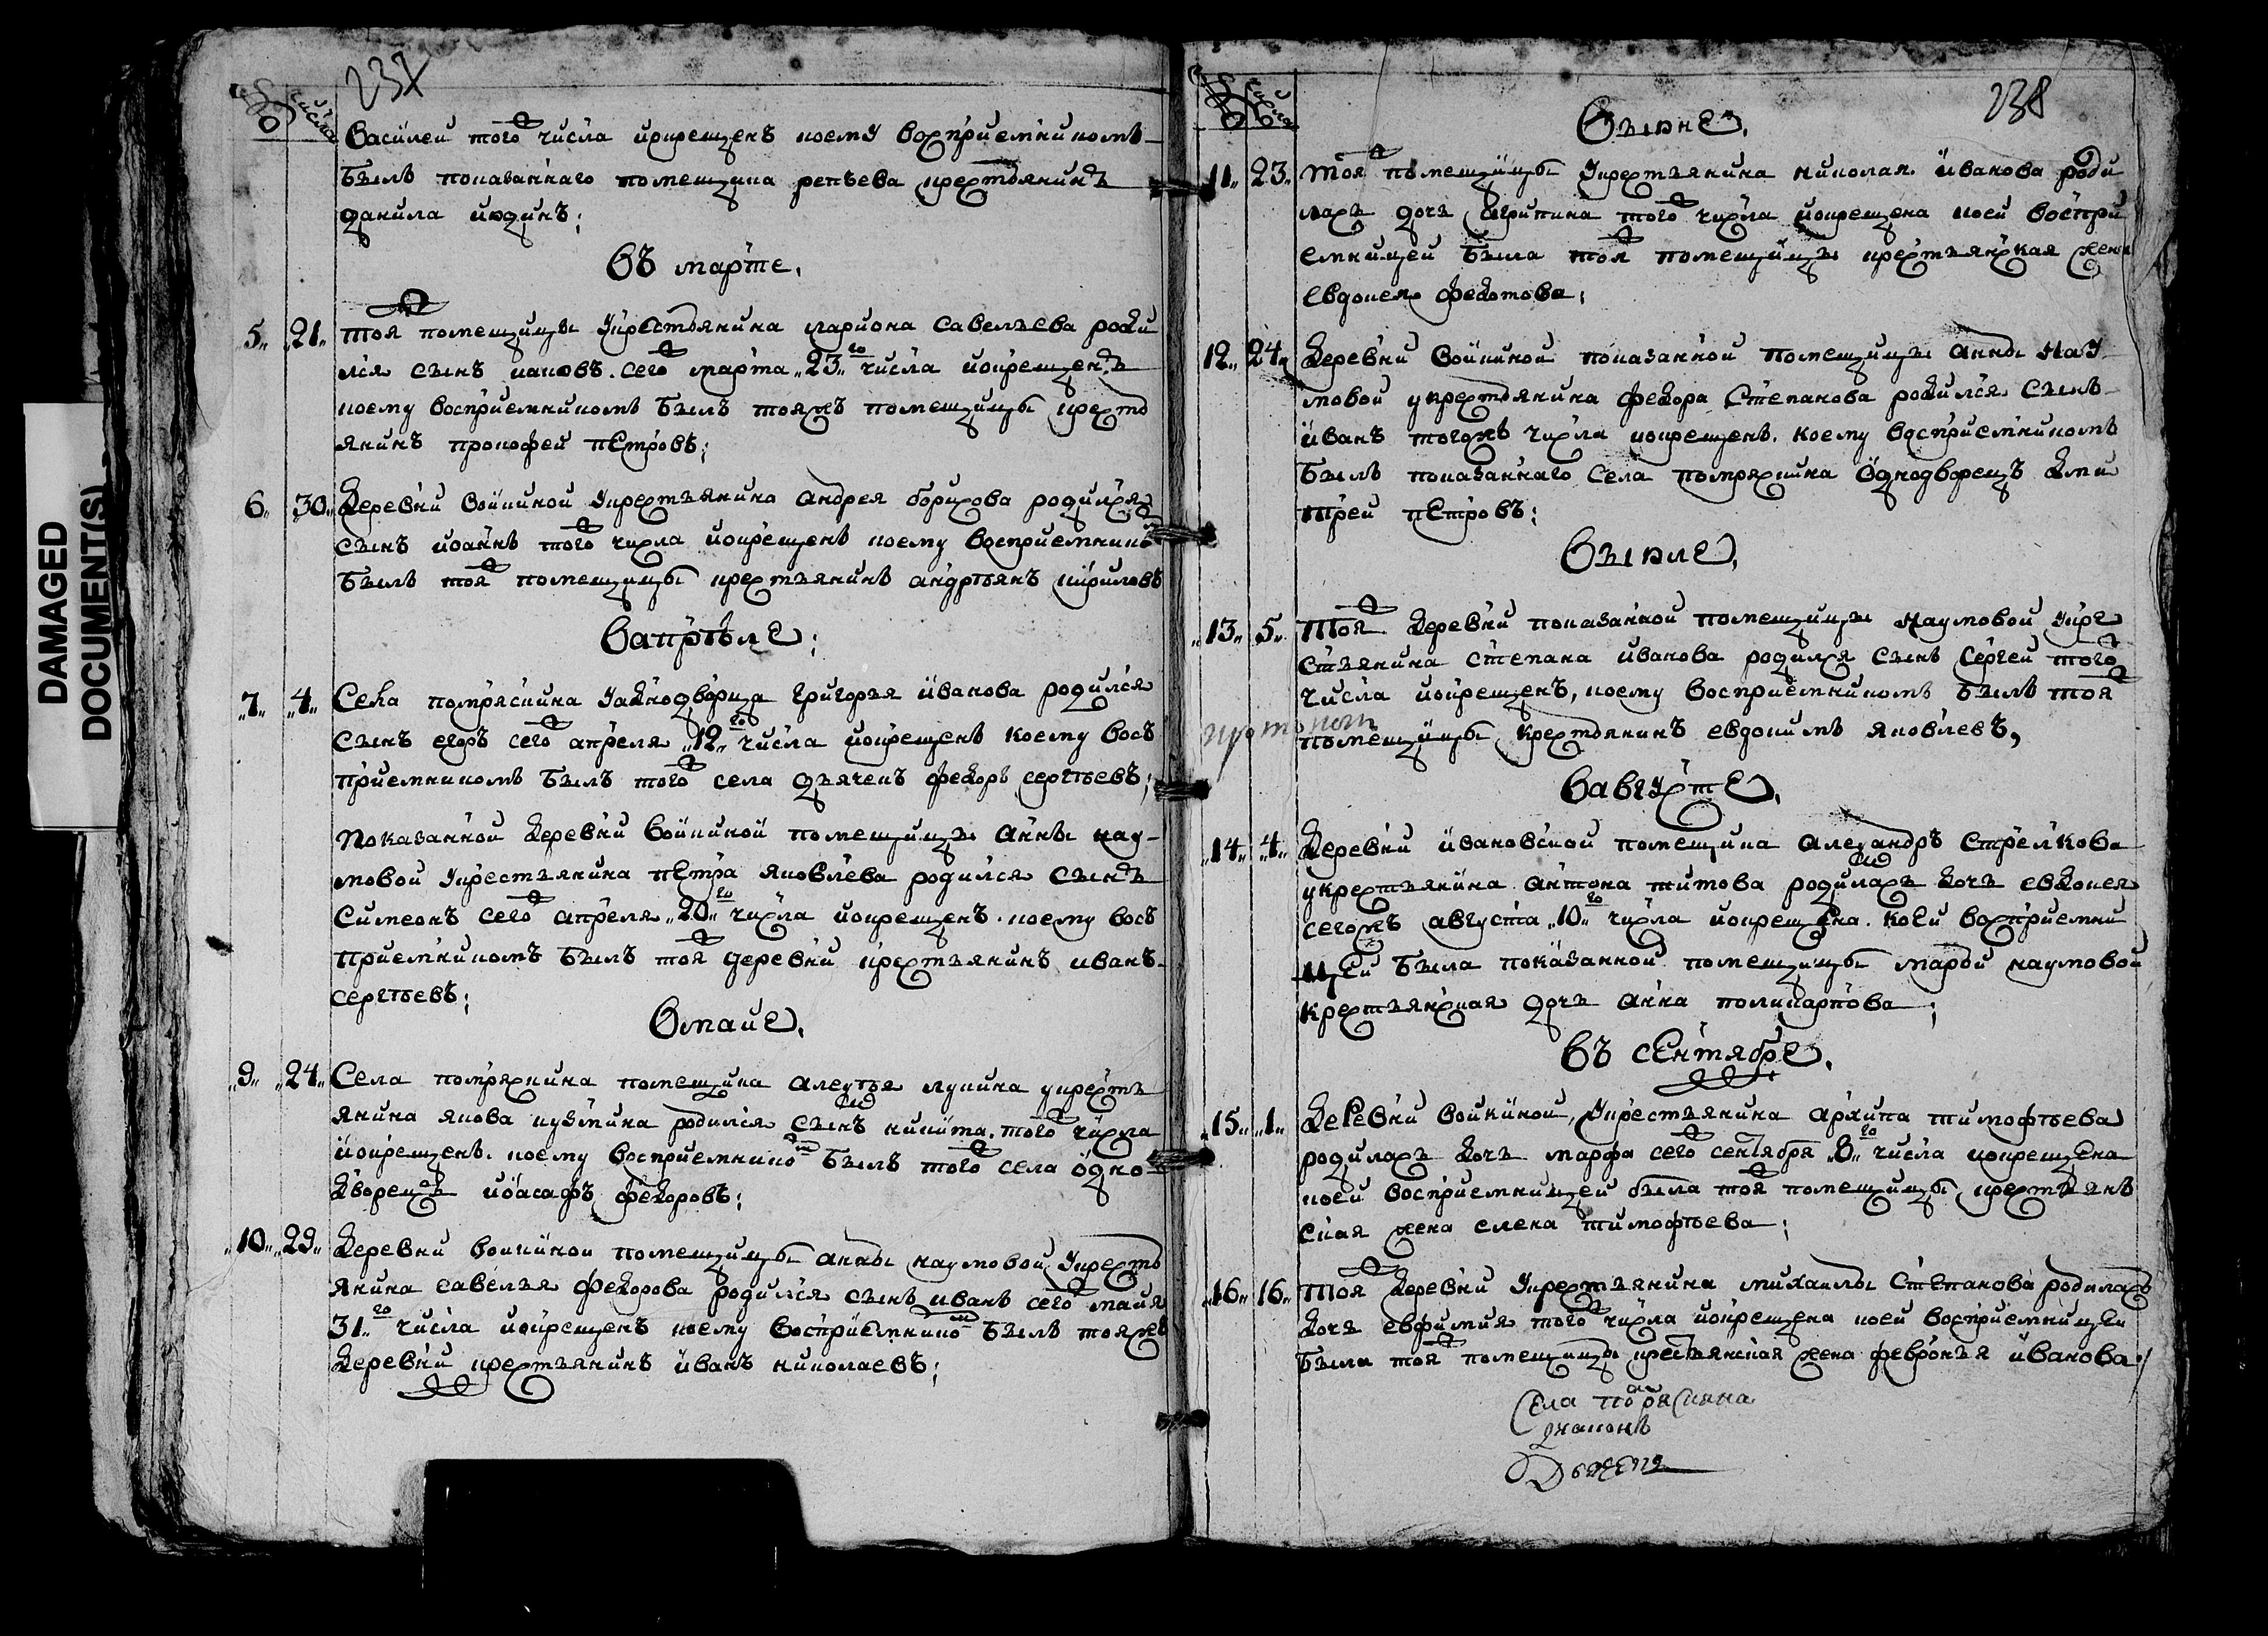 237
числа
Василеи того числа икрещенъ коему восприемникомъ
былъ показаннаго помещика репьева крестьянинъ
данила июдинъ;
Въ марте.
5. 21. тоя помещицы Укрестьянина лариона савельева роди
лся сынъ иаковъ. сего марта 23 го числа икрещенъ
коему восприемникомъ былъ тояжъ помещицы кресть
янинъ прокофеи петровъ;
6. 30. Деревни воикинои Укрестьянина андрея борисова родился
сынъ иоаннъ того числа икрещенъ коему восприемнико
былъ тоя помещицы крестьянинъ андреянъ кириловъ
Вапрѣле;
7. 4. Села потряскина Уаднодворца григорья иванова родился
сынъ егоръ сего апреля 12 го числа икрещенъ коему вос
приемникомъ былъ того села дьячекъ федоръ сергѣевъ;
Показаннои деревни воикинои помещицы анны нау-
мовои Укрестьянина петра яковлева родился сынъ
Симеонъ сего апреля 20 го числа икрещенъ. коему вос
приемникомъ былъ тоя деревни крестьянинъ иванъ
сергѣевъ;
Вмаие.
9. 24. Села потряскина помещика алеѯѣя лукина укресть
янина якова кузмина родился сынъ никита. того числа
икрещенъ. коему восприемнико м былъ того села одно
дворецъ иоасафъ федоровъ;
10. 29. Деревни воикинои помещицы анны наумовои Укресть
янина савелья федорова родился сынъ иванъ сего маия
31 го числа икрещенъ коему восприемнико м былъ тояжъ
деревни крестьянинъ иванъ николаевъ;
238
числа
Выюне.
11. 23. тоя помещицы Укрестьянина николая иванова роди
лась дочь агрипина того числа икрещена коеи воспри
емницеи была тоя помещицы крестьянская жена
евдокея федотова;
12. 24. Деревни воикинои показаннои помещицы анны нау
мовои укрестьянина федора степанова родился сынъ
иванъ тогожъ числа икрещенъ. коему восприемникомъ
былъ показаннаго села потряскина однодворецъ дми
трей петровъ;
Выюле.
13. 5. Тоя деревни показаннои помещицы наумовои Укре
стьянина степана иванова родился сынъ сергеи того
числа икрещенъ, коему восприемникомъ былъ тоя
помещицы крестьянинъ евдокимъ яковлевъ,
Вавгусте.
14. 4. Деревни ивановскои помещика алеѯандръ стрелкова
укрестьянина антона титова родилась дочь евдокея
сегожъ августа 10 го числа икрещена. коеи восприемни
цеи была показаннои помещицы марьи наумовои
крестьянская дочь анна поликарпова;
Въ сентябре.
15. 1. Деревни воикинои, Укрестьянина архипа тимофѣева
родилась дочь марфа сего сентября 8 го числа икрещена
коеи восприемницеи была тоя помещицы крестьян
ская жена елена тимофѣева;
16. 16. тоя деревни Укрестьянина михаилы степанова родилась
дочь евфимия того числа икрещена коеи восприемницеи
была тоя помещицы крестьянская жена февронья иванова
Села потряскина